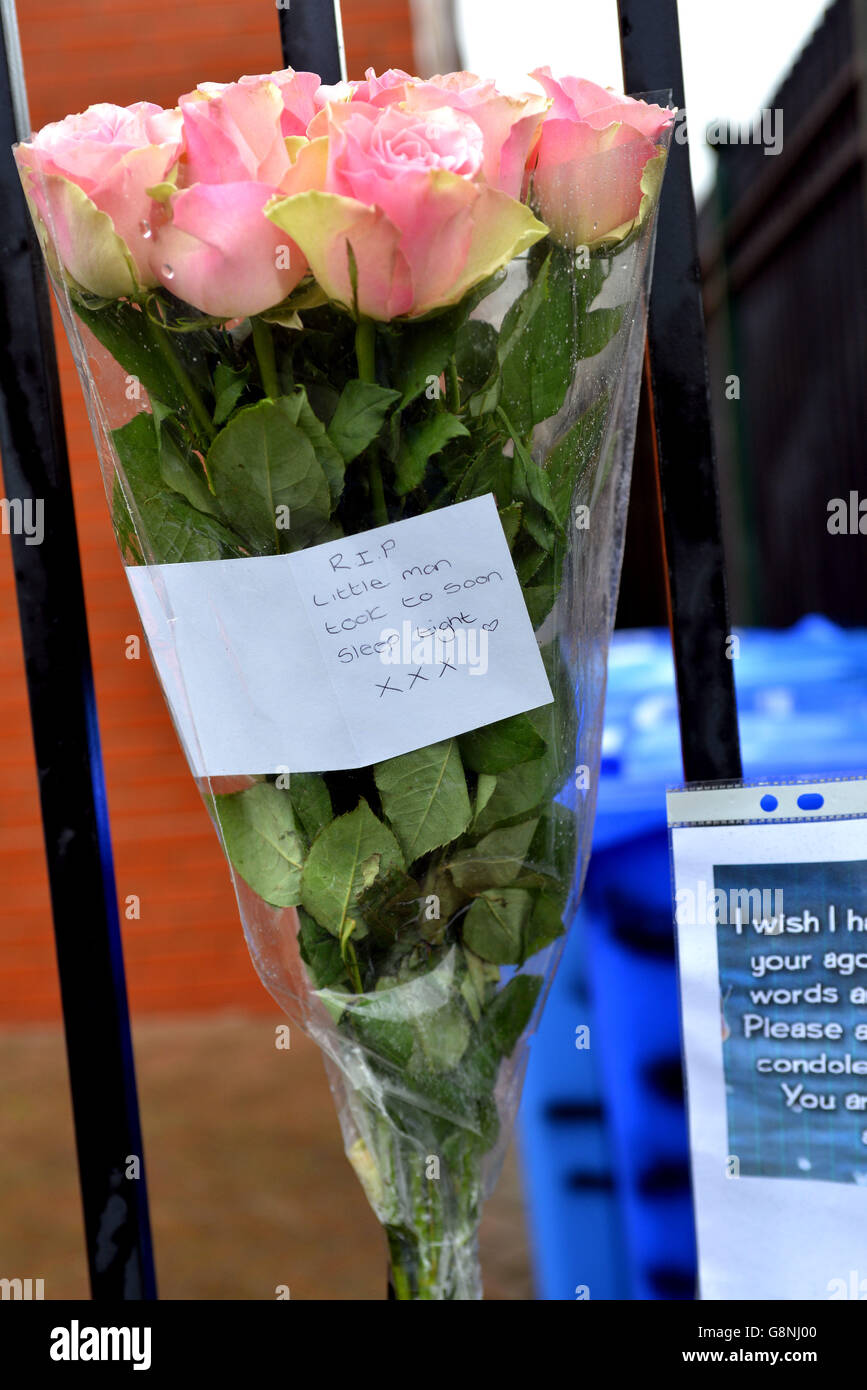 R.I.P
Little man
took to soon
sleep tight ♡
x x x
I wish I
your
words
Please
condole
You
alamy
Image ID: G8NJ00
www.alamy.com